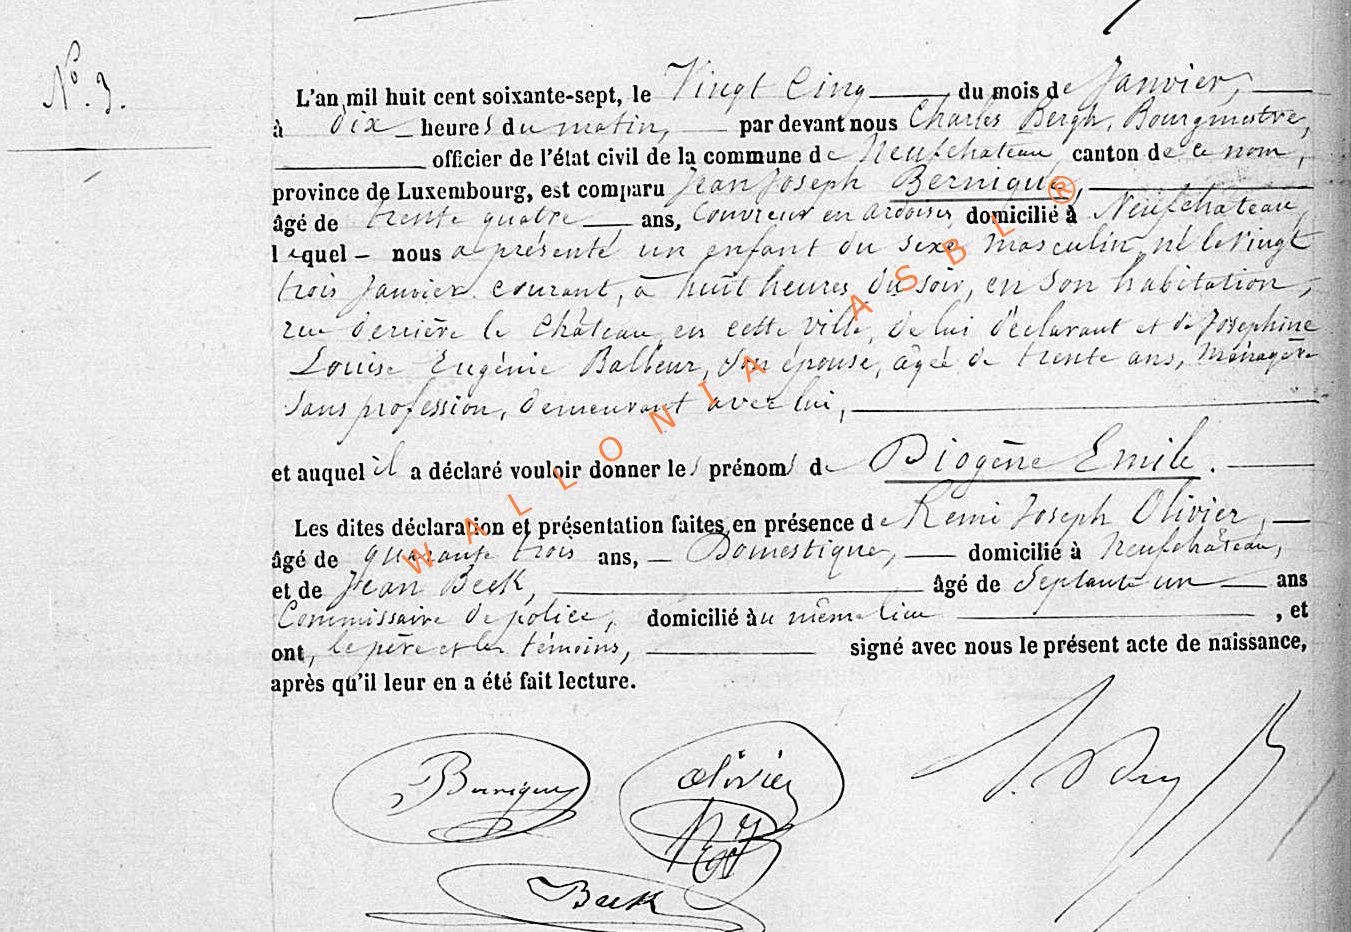 N° 3.
L'an mil huit cent soixante-sept, le Vingt Cinq du mois de Janvier,
à dix heures du matin, par devant nous Charles Bergh, Bourgmestre,
officier de l'état civil de la commune de Neufchateau canton de ce nom,
province de Luxembourg, est comparu Jean Joseph Bernique,
âgé de trente quatre ans, Couvreur en ardoises, domicilié à Neufchateau
lequel nous a présenté un enfant du sexe masculin, né le vingt
trois Janvier courant, à huit heures du soir, en son habitation,
rue derrière le Château, en cette ville, de lui déclarant et de Josephine
Louise Eugénie Balbeur, son épouse, âgée de trente ans, Ménagère
sans profession, demeurant avec lui,
et auquel il a déclaré vouloir donner les prénoms de Diogène Emile.
Les dites déclaration et présentation faites en présence de Remi Joseph Olivier,
âgé de quarante trois ans, Domestique, domicilié à Neufchâteau,
et de Jean Beck, âgé de Septante un ans
Commissaire de police, domicilié au même lieu , et
ont, le père et les témoins, signé avec nous le présent acte de naissance,
après qu'il leur en a été fait lecture.
WALLONIA ASBL ®
Bernique
Olivier
Beck